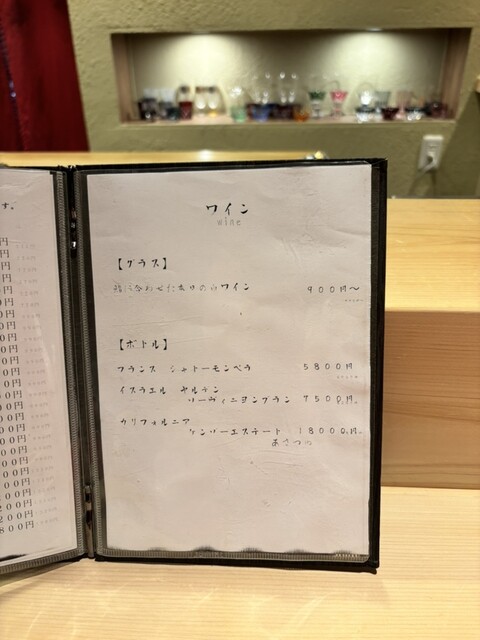 す。
ワイン
wine
【グラス】
鮨に合わせた香りの白ワイン 900円〜
【ボトル】
フランス シャトーモンペラ 5800円
イスラエル ヤルデン
ソーヴィニヨンブラン 7500円
カリフォルニア
ケンゾーエステート 18000円
あさつゆ
円
円
円
円
円
円
00円
00円
00円
00円
00円
00円
00円
00円
200円
200円
800円